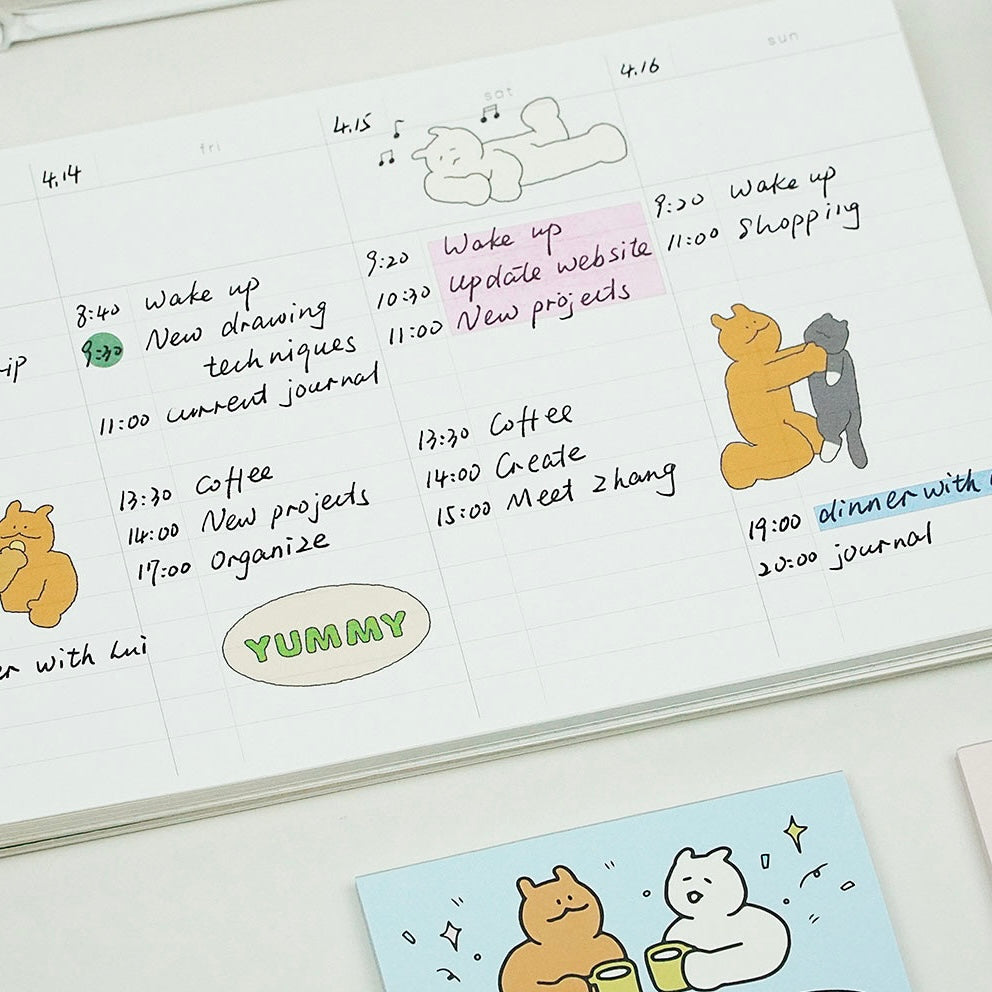 er with Lui
4.14 fri
8:40 Wake up
9:30 New drawing
techniques
11:00 current journal
13:30 Coffee
14:00 New projects
17:00 Organize
YUMMY
4.15 sat
9:20 Wake up
10:30 update website
11:00 New projects
13:30 Coffee
14:00 Create
15:00 Meet Zhang
4.16 sun
9:20 Wake up
11:00 Shopping
19:00 dinner with
20:00 journal